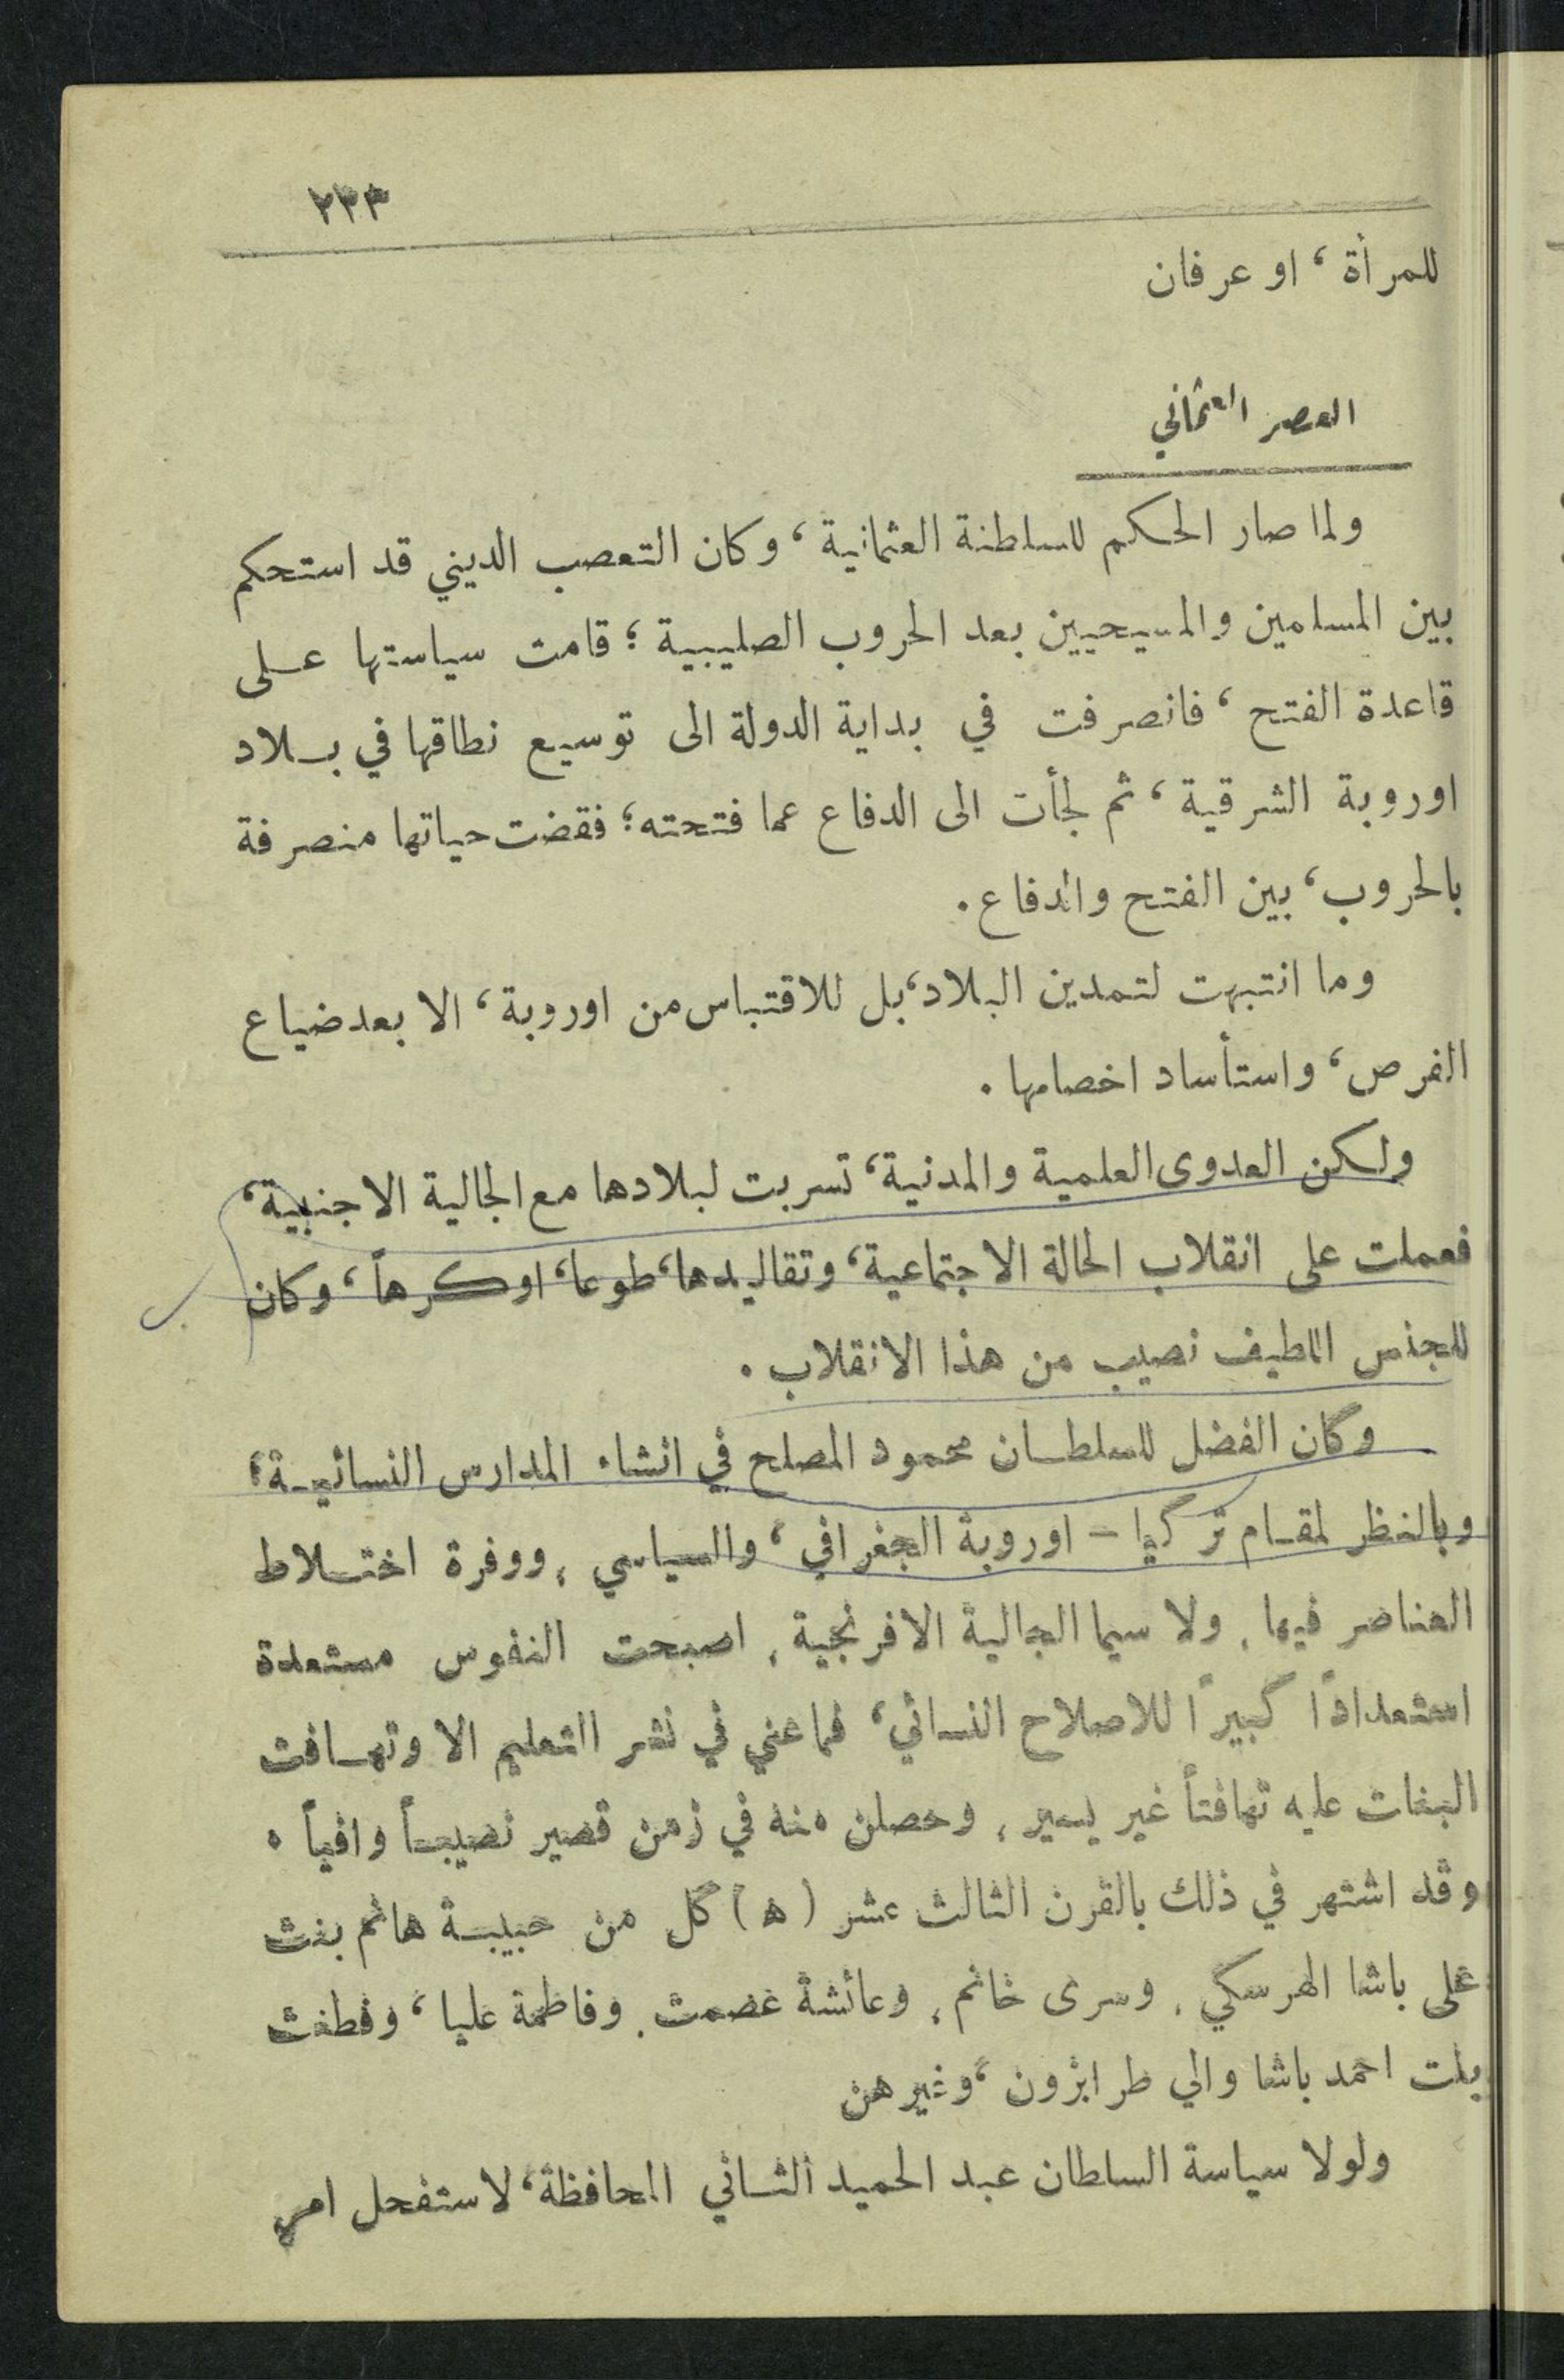 ٢٣٣
للمرأة ، او عرفان
العصر العثماني
ولما صار الحكم للسلطنة العثمانية ، وكان التعصب الديني قد استحكم
بين المسلمين والمسيحيين بعد الحروب الصليبية ؛ قامت سياستها على
قاعدة الفتح ، فانصرفت في بداية الدولة الى توسيع نطاقها في بلاد
اوروبة الشرقية ، ثم لجأت الى الدفاع عما فتحته ؛ فقضت حياتها منصرفة
بالحروب ، بين الفتح والدفاع .
وما انتبهت لتمدين البلاد ، بل للاقتباس من اوروبة ، الا بعد ضياع
الفرص ، واستأساد اخصامها .
ولكن العدوى العلمية والمدنية ، تسربت لبلادها مع الجالية الاجنبية ،
فعملت على انقلاب الحالة الاجتماعية ، وتقاليدها ، طوعا ، او كرهاً ، وكان
للجنس اللطيف نصيب من هذا الانقلاب .
وكان الفضل للسلطان محمود المصلح في انشاء المدارس النسائية ؛
وبالنظر لمقام تركيا - اوروبة الجغرافي ، والسياسي ، ووفرة اختلاط
العناصر فيها ، ولا سيما الجالية الافرنجية ، اصبحت النفوس مستعدة
استعدادًا كبيرًا للاصلاح النسائي ، فما عني في نشر التعليم الا وتهافت
البنات عليه تهافتاً غير يسير ، وحصلن منه في زمن قصير نصيباً وافياً .
وقد اشتهر في ذلك بالقرن الثالث عشر ( ه ) كل من حبيبة هانم بنت
على باشا الهرسكي ، وسرى خانم ، وعائشة عصمت ، وفاطمة عليا ، وفطنت
بنت احمد باشا والي طرابزون ، وغيرهن
ولولا سياسة السلطان عبد الحميد الثاني المحافظة ، لاستفحل امر